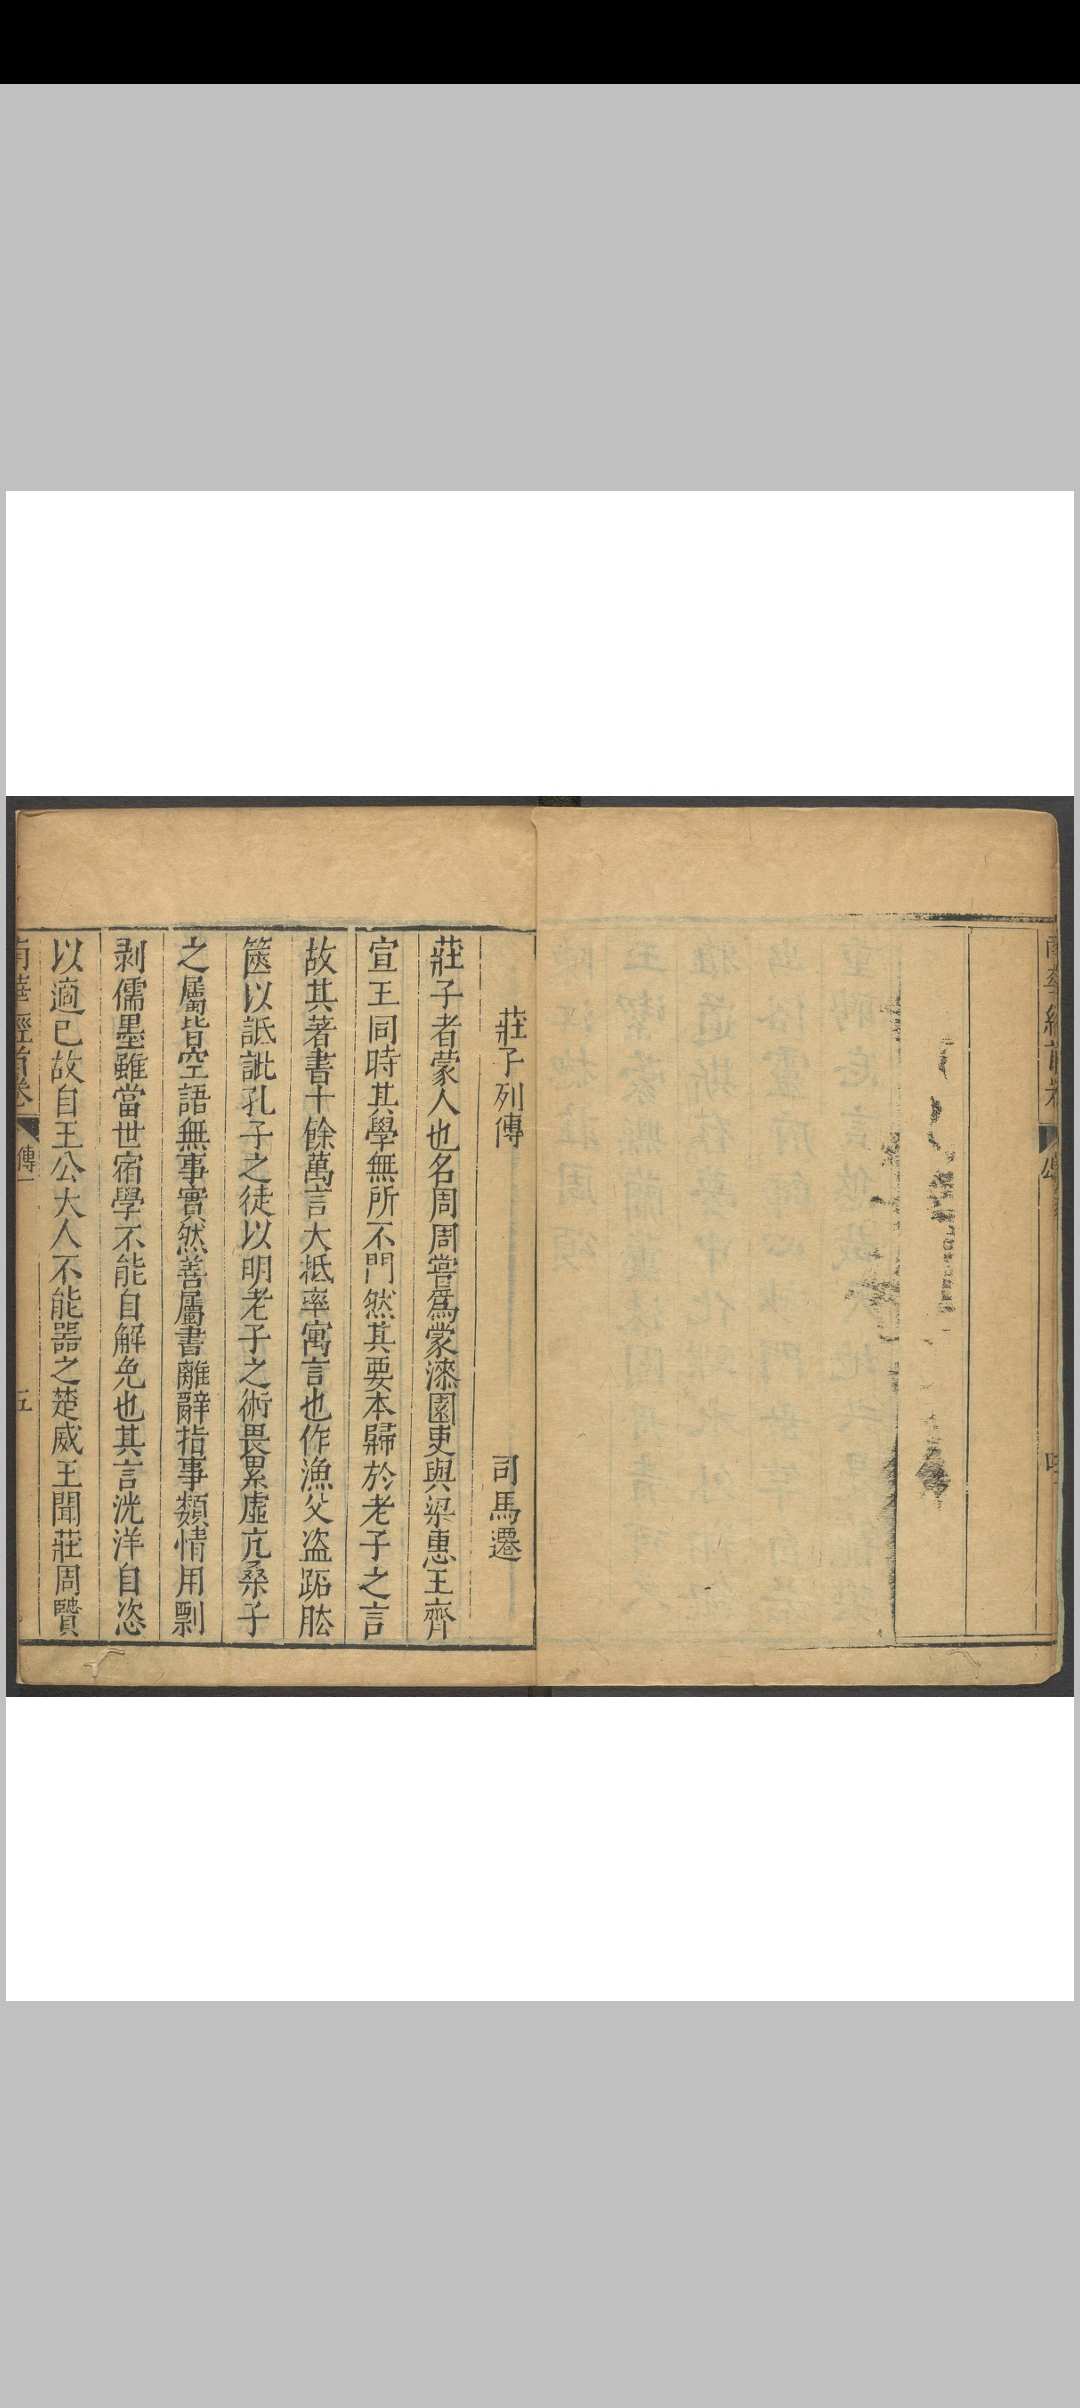 莊子列傳 司馬遷
莊子者蒙人也名周周嘗爲蒙漆園吏與梁惠王齊
宣王同時其學無所不闚然其要本歸於老子之言
故其著書十餘萬言大抵率寓言也作漁父盗跖胠
篋以詆訿孔子之徒以明老子之術畏累虛亢桑子
之屬皆空語無事實然善屬書離辭指事類情用剽
剥儒墨雖當世宿學不能自解免也其言洸洋自恣
以適已故自王公大人不能噐之楚威王聞莊周贒
南華經首卷 傳一 五